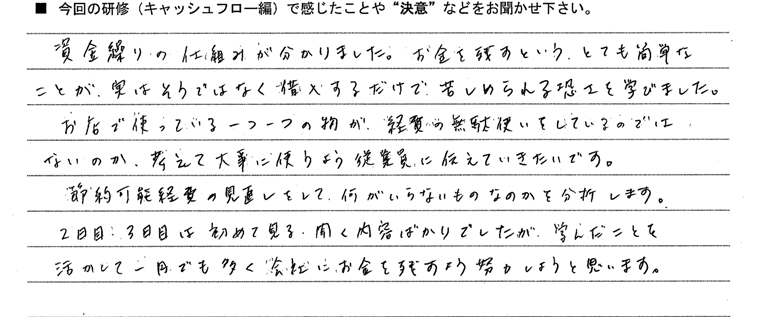 ■ 今回の研修（キャッシュフロー編）で感じたことや“決意”などをお聞かせ下さい。
資金繰りの仕組みが分かりました。お金を残すという、とても簡単な
ことが、実はそうではなく借入するだけで苦しめられる恐さを学びました。
お店で使っている一つ一つの物が、経費の無駄使いをしているのでは
ないのか、考えて大事に使うよう従業員に伝えていきたいです。
節約可能経費の見直しをして、何がいらないものなのかを分析します。
2日目、3日目は初めて見る・聞く内容ばかりでしたが、学んだことを
活かして一円でも多く会社にお金を残すよう努力しようと思います。